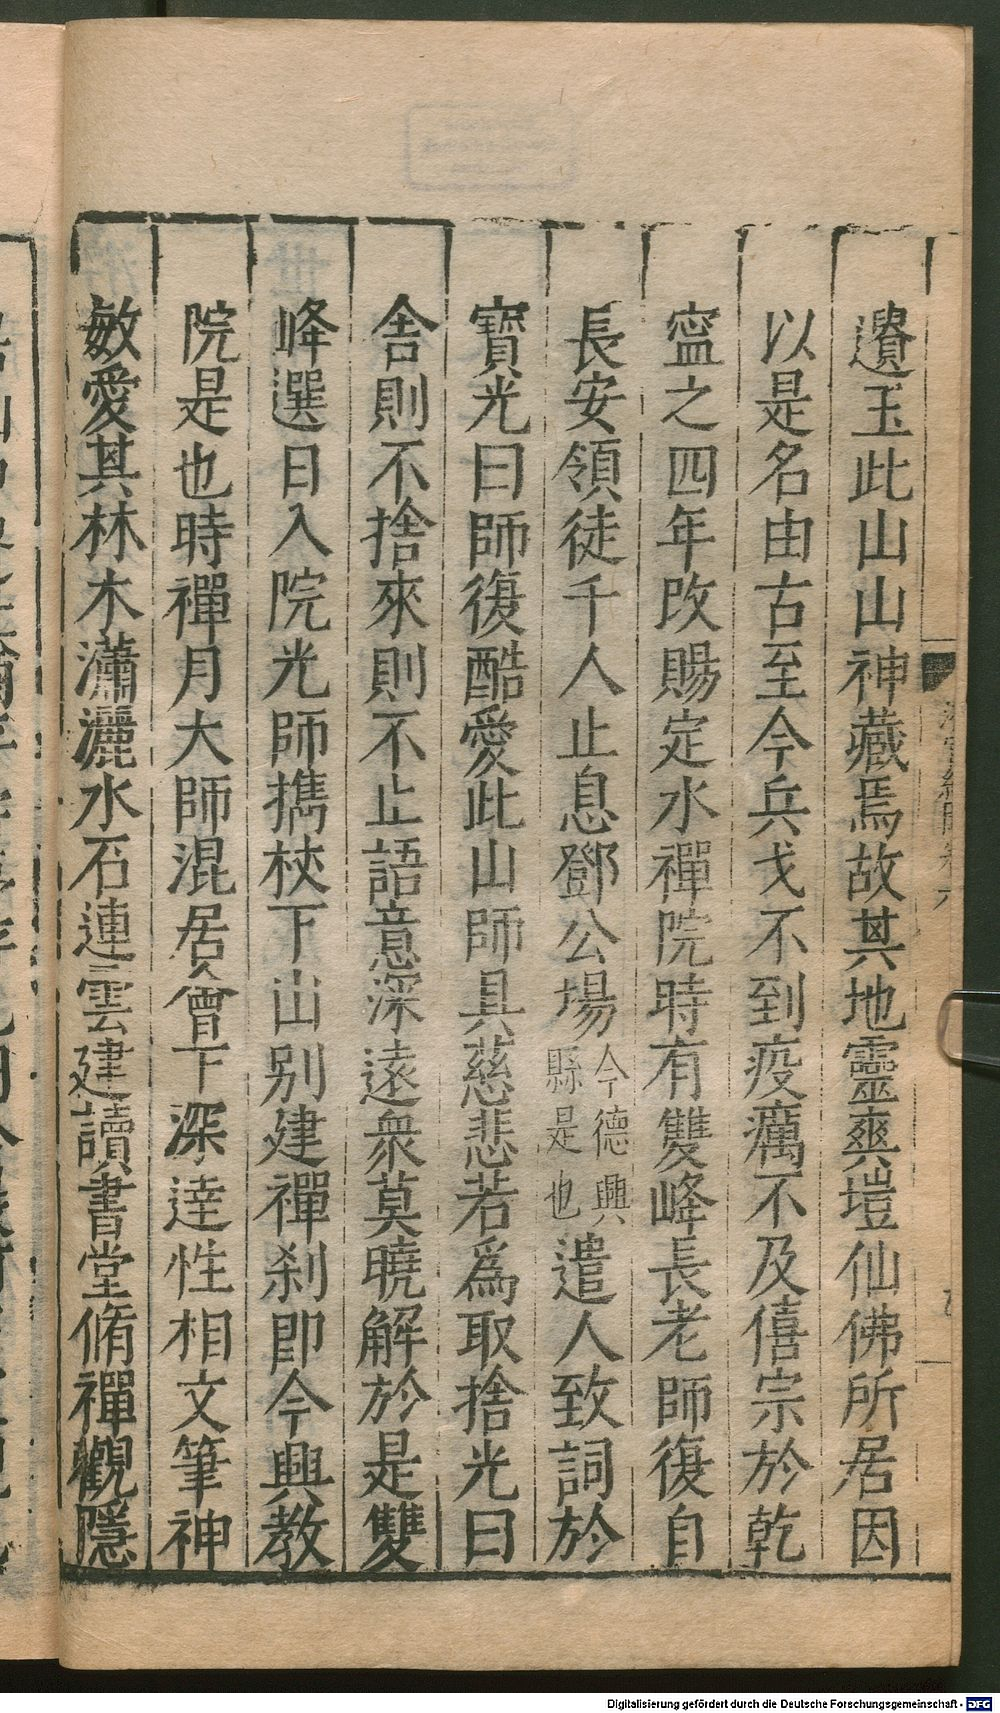 遺玉此山山神藏焉故其地靈爽塏仙佛所居因
以是名由古至今兵戈不到疫癘不及僖宗於乾
寧之四年改賜定水禪院時有雙峰長老師復自
長安領徒千人止息鄧公場今德興縣是也遣人致詞於
寶光曰師復酷愛此山師具慈悲若爲取捨光曰
舍則不捨來則不止語意深遠衆莫曉解於是雙
峰選日入院光師擕杖下山别建禪刹即今興教
院是也時禪月大師混居會下深達性相文筆神
敏愛其林木瀟灑水石連雲建讀書堂脩禪觀隱
Digitalisierung gefördert durch die Deutsche Forschungsgemeinschaft - DFG